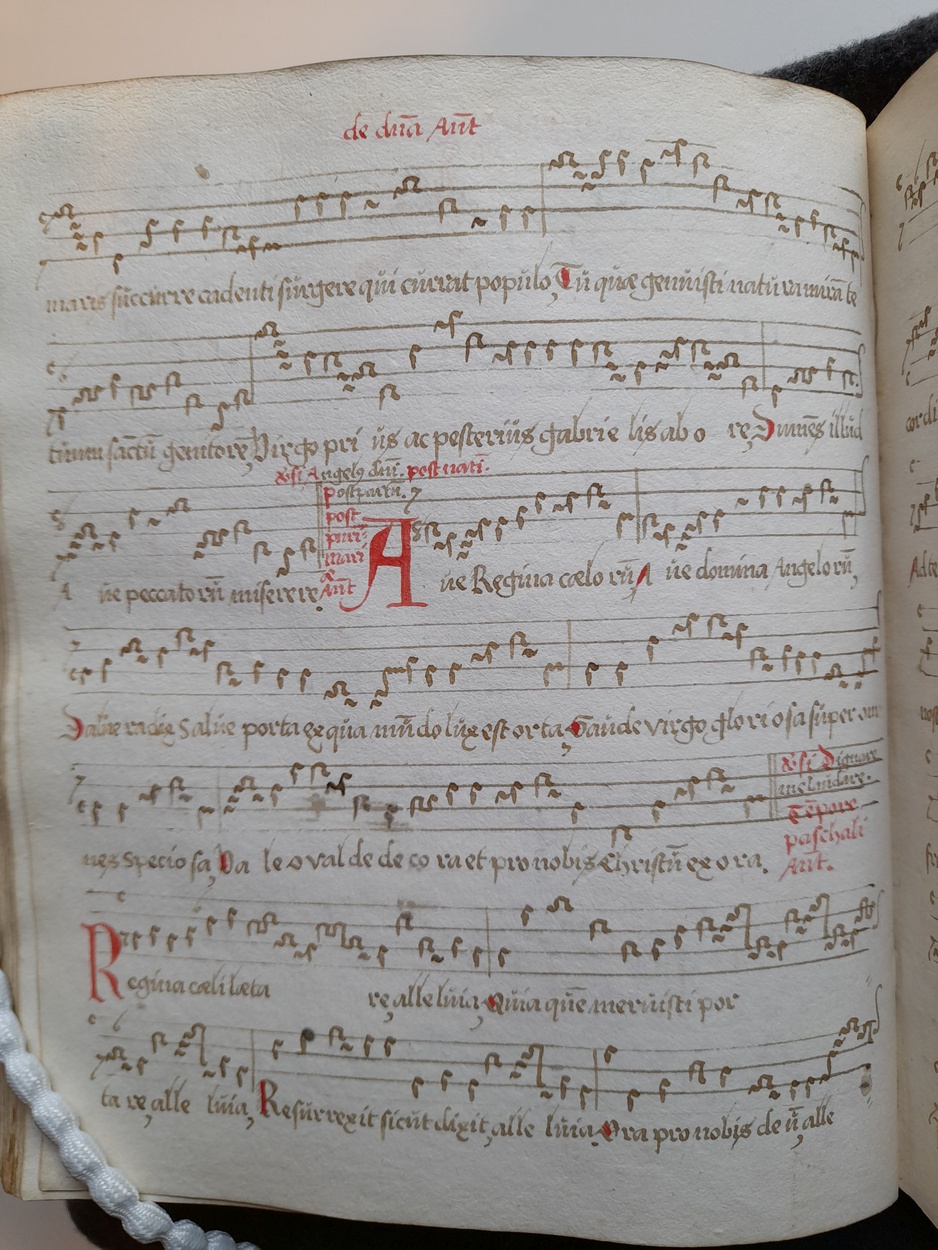 de dn̄a Ant̄
maris succurre cadenti surgere qui currat populo, Tu quæ genuisti natura mirāte
tuum sāctū genitorē, Virgo pri us ac posterius gabrie lis ab o re, Sumēs illud
℣si Angelꝰ dnī. post nati.
post partū.
post
puri.
mari
Ant̄
A ue peccatorū miserere,
Aue Regina cœlo rū, A ue domina Angelo rū,
Salue radix Salue porta ex qua mūdo lux est orta, Gaude virgo glo ri osa super om
nes specio sa, Va le o val de de co ra et pro nobis Christū ex o ra.
℣si Dignare
me laudare.
Tēpore
paschali
Ant.
Regina cœli læta re, alleluia, Quia quē meruisti por
ta re, alle luia, Resurrexit sicut dixit, alle luia, Ora pro nobis de ū, alle